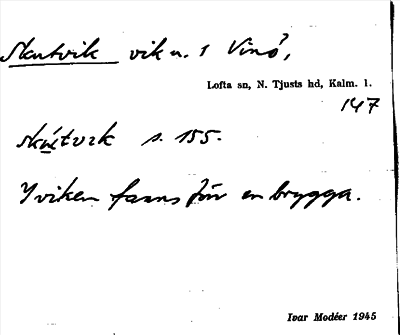 Skutvik vik n. 1 Vinö,
Lofta sn, N. Tjusts hd, Kalm. l.
147
s. 155.
I viken fanns för en brygga.
Ivar Modéer 1945